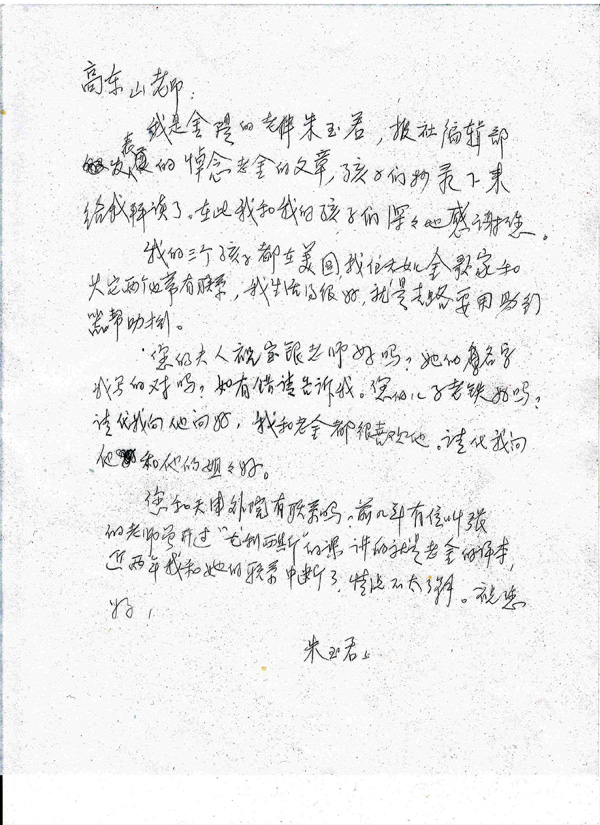 高东山老师：
我是金隄的老伴朱玉若，报社编辑部
发表的悼念老金的文章，孩子们抄录下来
给我解读了。在此我和我的孩子们深々地感谢您。
我的三个孩子都在美国我住在女儿金家和
大定两个常有联系，我生活得很好，就是走路要用助行
器帮助
您的夫人祝宝银老师好吗？她的名字
我写的对吗？如有错请告诉我。您的儿子老铁好吗？
请代我向他问好，我和老金都很喜欢他。请代我向
他和他的姐々好。
您和天津外院有联系吗，前几年有位叫张
的老师曾开过“尤利西斯”的课讲的就是老金的译本，
近两年我和她的联系中断了，情况不太了解。祝您
好，
朱玉若上